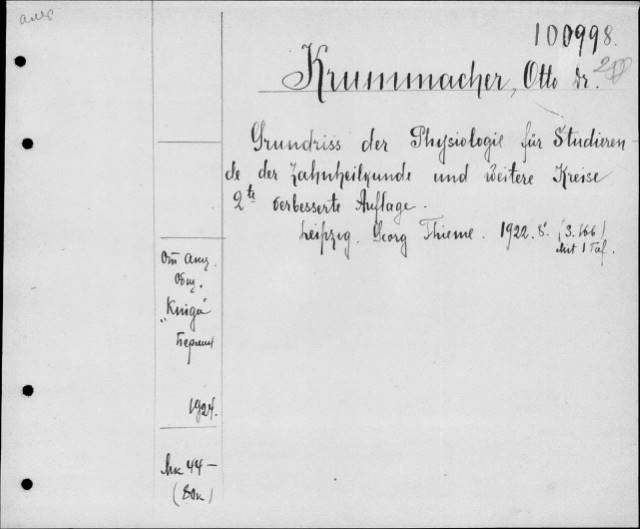 100998.
Krummacher, Otto Dr.
Grundriss der Physiologie für Studieren-
de der Zahnheilkunde und weitere Kreise
2te verbesserte Auflage.
Leipzig. Georg Thieme. 1922. 8. (S. 166)
Mit 1 Taf.
От акц.
Общ.
„Kniga"
Берлин
1924.
Mк 44 —